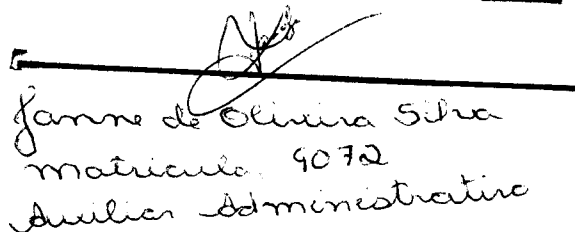 Janne de Oliveira Silva
Matricula 9072
Auxiliar Administrativo